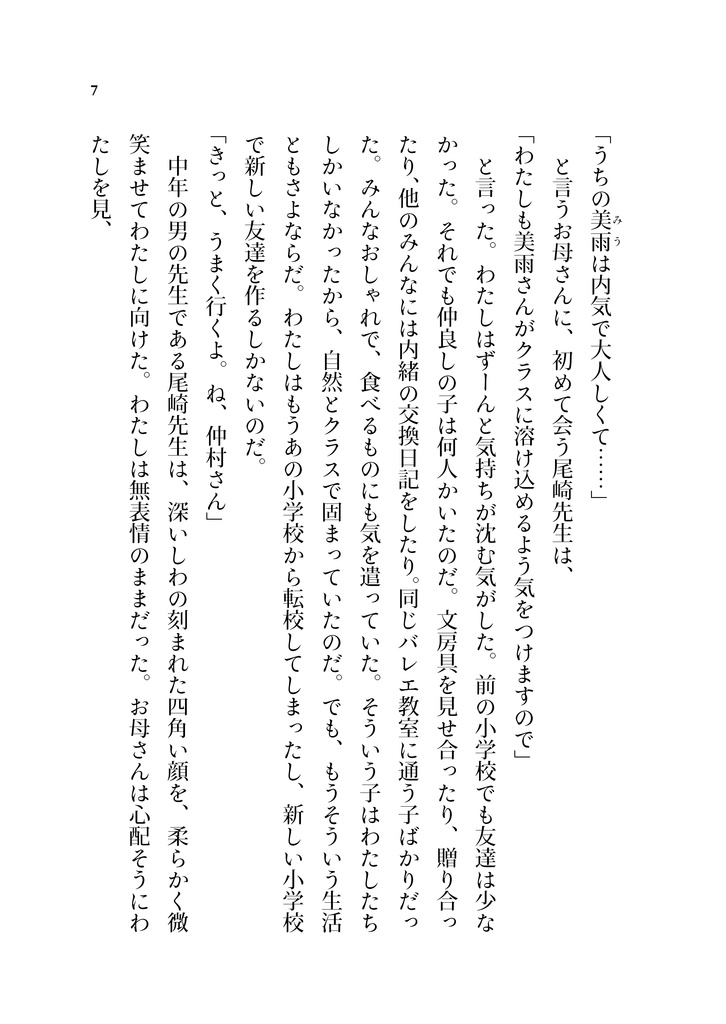 「うちの美雨は内気で大人しくて……」
みう
と言うお母さんに、初めて会う尾崎先生は、
「わたしも美雨さんがクラスに溶け込めるよう気をつけますので」
と言った。わたしはずーんと気持ちが沈む気がした。前の小学校でも友達は少な
かった。それでも仲良しの子は何人かいたのだ。文房具を見せ合ったり、贈り合っ
たり、他のみんなには内緒の交換日記をしたり。同じバレエ教室に通う子ばかりだっ
た。みんなおしゃれで、食べるものにも気を遣っていた。そういう子はわたしたち
しかいなかったから、自然とクラスで固まっていたのだ。でも、もうそういう生活
ともさよならだ。わたしはもうあの小学校から転校してしまったし、新しい小学校
で新しい友達を作るしかないのだ。
「きっと、うまく行くよ。ね、仲村さん」
中年の男の先生である尾崎先生は、深いしわの刻まれた四角い顔を、柔らかく微
笑ませてわたしに向けた。わたしは無表情のままだった。お母さんは心配そうにわ
たしを見、
7